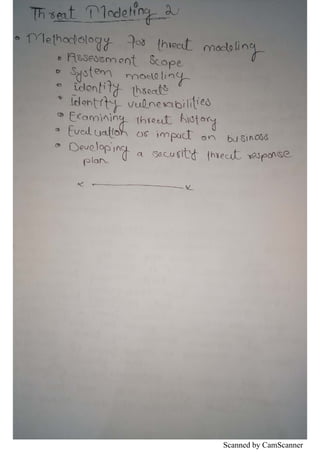 Threat Modeling 2
• Methodology for threat modeling
• Assessment Scope
• System modeling
• Identify threats
• Identify vulnerabilities
• Examining threat history
• Evaluation or impact on business
• Developing a security threat response
plan
Scanned by CamScanner